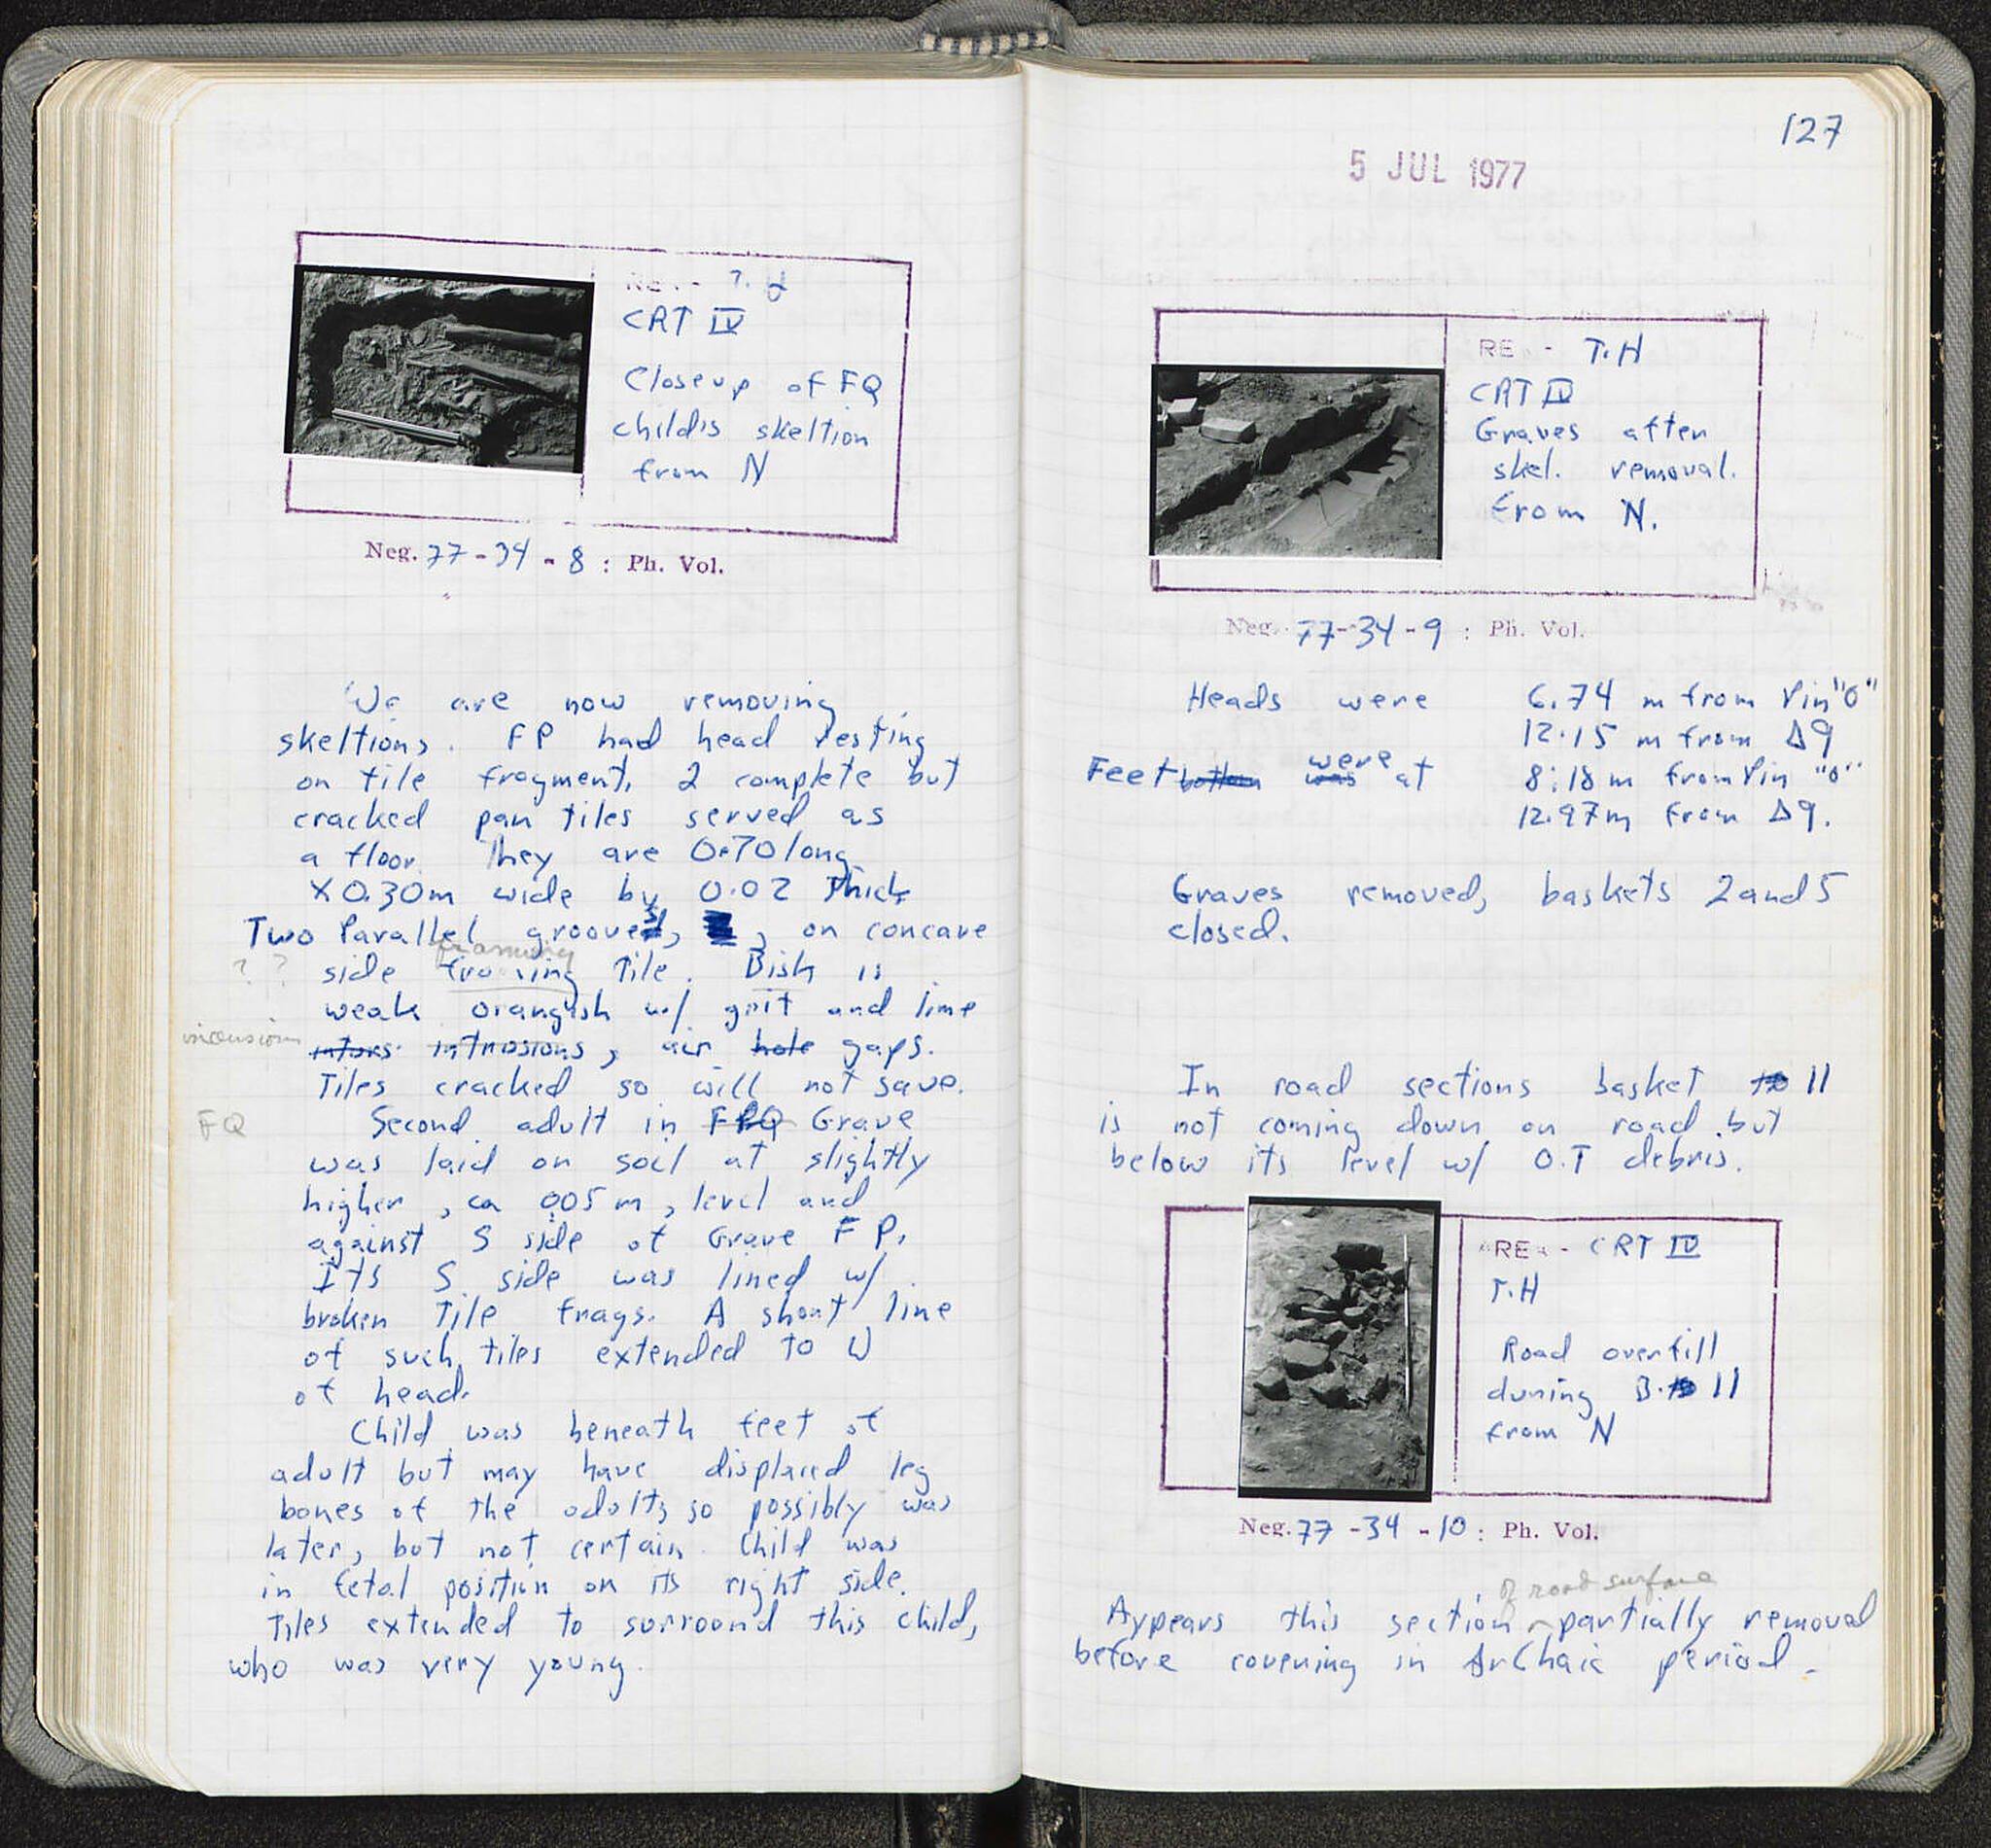 RE - T. H
CRT IV
Closeup of FQ
childis skeltion
from N
Neg. 77-34-8 : Ph. Vol.
We are now removing
skeltions. FP had head resting
on tile fragment, 2 complete but
cracked pan tiles served as
a floor. They are 0.70 long
X 0.30m wide by 0.02 Thick
Two Parallel grooves, , on concave
framing
? ? side tile. Bisk is
weak orangish w/ grit and lime
inclusions inturs. intrusions, air hole gaps.
Tiles cracked so will not save.
FQ Second adult in FPQ Grave
was laid on soil at slightly
higher, ca 0.05m, level and
against S side of Grave FP.
Its S side was lined w/
broken Tile frags. A short line
of such tiles extended to W
of head.
Child was beneath feet of
adult but may have displaced leg
bones of the adult, so possibly was
later, but not certain. Child was
in fetal position on its right side.
Tiles extended to surround this child,
who was very young.
127
5 JUL 1977
RE - T.H
CRT IV
Graves after
skel. removal.
From N.
Neg. 77-34-9 : Ph. Vol.
Heads were 6.74 m from Pin "0"
12.15 m from Δ9
were
Feet bottom was at 8.18 m from Pin "0"
12.97m from Δ9.
Graves removed, baskets 2 and 5
closed.
In road sections basket 10 11
is not coming down on road but
below its level w/ O.T debris.
RE - CRT IV
T.H
Road overfill
during B. 10 11
from N
Neg. 77-34-10 : Ph. Vol.
of road surface
Appears this section partially removal
before covering in Archaic period.